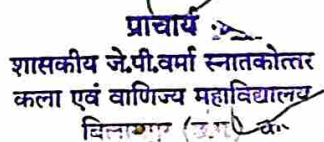 प्राचार्य
शासकीय जे.पी.वर्मा स्नातकोत्तर
कला एवं वाणिज्य महाविद्यालय